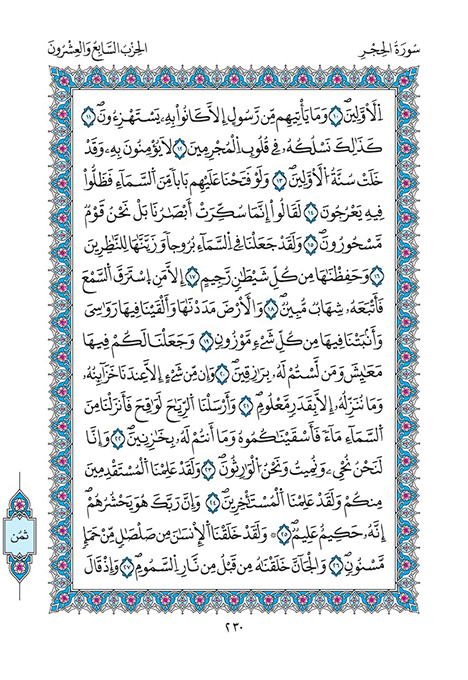 سُورَةُ الحِجْرِ
الحِزْبُ السَّابِعُ وَالعِشْرُونَ
اَ۬لَاوَّلِينَۖ ١٠ وَمَا يَأْتِيهِم مِّن رَّسُولٍ اِلَّا كَانُواْ بِهِۦ يَسْتَهْزِءُونَۖ ١١
كَذَٰلِكَ نَسْلُكُهُۥ فِے قُلُوبِ اِ۬لْمُجْرِمِينَ ١٢ لَا يُومِنُونَ بِهِۦ وَقَدْ
خَلَتْ سُنَّةُ اُ۬لَاوَّلِينَۖ ١٣ وَلَوْ فَتَحْنَا عَلَيْهِم بَاباٗ مِّنَ اَ۬لسَّمَآءِ فَظَلُّواْ
فِيهِ يَعْرُجُونَ ١٤ لَقَالُوٓاْ إِنَّمَا سُكِّرَتَ اَبْصَٰرُنَا بَلْ نَحْنُ قَوْمٞ
مَّسْحُورُونَۖ ١٥ وَلَقَدْ جَعَلْنَا فِے اِ۬لسَّمَآءِ بُرُوجاٗ وَزَيَّنَّٰهَا لِلنَّٰظِرِينَ
١٦ وَحَفِظْنَٰهَا مِن كُلِّ شَيْطَٰنٖ رَّجِيمٍ ١٧ اِلَّا مَنِ اِ۪سْتَرَقَ اَ۬لسَّمْعَ
فَأَتْبَعَهُۥ شِهَابٞ مُّبِينٞۖ ١٨ وَالَارْضَ مَدَدْنَٰهَا وَأَلْقَيْنَا فِيهَا رَوَٰسِيَ
وَأَنۢبَتْنَا فِيهَا مِن كُلِّ شَےْءٖ مَّوْزُونٖۖ ١٩ وَجَعَلْنَا لَكُمْ فِيهَا
مَعَٰيِشَ وَمَن لَّسْتُمْ لَهُۥ بِرَٰزِقِينَۖ ٢٠ وَإِن مِّن شَےْءٍ اِلَّا عِندَنَا خَزَآئِنُهُۥ
وَمَا نُنَزِّلُهُۥٓ إِلَّا بِقَدَرٖ مَّعْلُومٖۖ ٢١ وَأَرْسَلْنَا اَ۬لرِّيَٰحَ لَوَٰقِحَ فَأَنزَلْنَا مِنَ
اَ۬لسَّمَآءِ مَآءٗ فَأَسْقَيْنَٰكُمُوهُ وَمَآ أَنتُمْ لَهُۥ بِخَٰزِنِينَۖ ٢٢ وَإِنَّا
لَنَحْنُ نُحْيِۦ وَنُمِيتُ وَنَحْنُ اُ۬لْوَٰرِثُونَۖ ٢٣ وَلَقَدْ عَلِمْنَا اَ۬لْمُسْتَقْدِمِينَ
مِنكُمْ وَلَقَدْ عَلِمْنَا اَ۬لْمُسْتَٰخِرِينَۖ ٢٤ وَإِنَّ رَبَّكَ هُوَ يَحْشُرُهُمُۥٓۖ
إِنَّهُۥ حَكِيمٌ عَلِيمٞۖ ٢٥ ۞ وَلَقَدْ خَلَقْنَا اَ۬لِانسَٰنَ مِن صَلْصَٰلٖ مِّنْ حَمَإٖ
مَّسْنُونٖۖ ٢٦ وَالْجَآنَّ خَلَقْنَٰهُ مِن قَبْلُ مِن نَّارِ اِ۬لسَّمُومِۖ ٢٧ وَإِذْ قَالَ
ثُمُن
٢٣٠